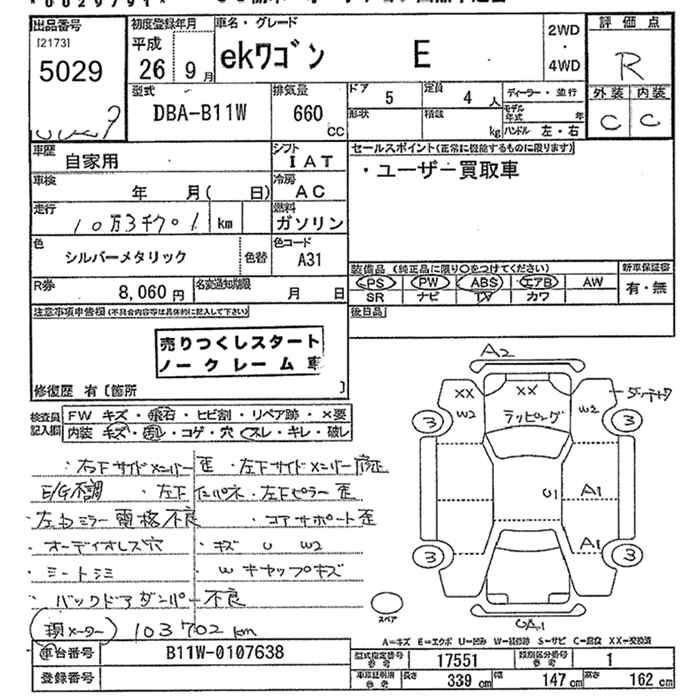 出品番号 初度登録年月 車名・グレード 評価点
[2173] 平成 2WD
5029 26年9月 ekワゴン E ・ R
4WD
型式 排気量 ドア 5 定員 4人 ディーラー・並行 外装 内装
DBA-B11W 660 CC 形状 積載 kg モデル年式 年 C C
ハンドル 左・右
車歴 自家用 シフト IAT セールスポイント(正常に機能するものに限ります)
車検 年 月( 日) 冷房 AC ・ユーザー買取車
走行 10万3千701 km 燃料 ガソリン
色 シルバーメタリック 色替 色コード A31
装備品(純正品に限り○をつけてください) 新車保証書
R券 8,060円 名変通知期限 月 日 PS PW ABS エアB AW 有・無
SR ナビ TV カワ
注意事項申告欄(不具合内容等は具体的に記入して下さい) 後日品
売りつくしスタート
ノークレーム車
修復歴 有 [箇所 ]
検査員記入欄 FW キズ・飛石・ヒビ割・リペア跡・×要
内装 キズ・汚レ・コゲ・穴・スレ・キレ・破レ
A2
XX XX ダンテツキ
W2 ラッピング W2
3 3
・右下サイドメンバー歪 ・左下サイドメンバー修正
E/G不調 ・左下インパネ・左下ピラー歪
・左右ミラー電格不良 ・コアサポート歪
U1 A1
・オーディオレス穴 ・キズ U W2
A1
・シートシミ ・Wキャップキズ
3 3
・バックドアダンパー不良
スペア
UA1
(現メーター) 103702km
A=キズ E=エクボ U=凹み W=補修跡 S=サビ C=腐食 XX=交換済
車台番号 B11W-0107638 型式指定番号 参考 17551 類別区分番号 参考 1
登録番号 車車証明書 参考 長さ 339cm 幅 147cm 高さ 162cm